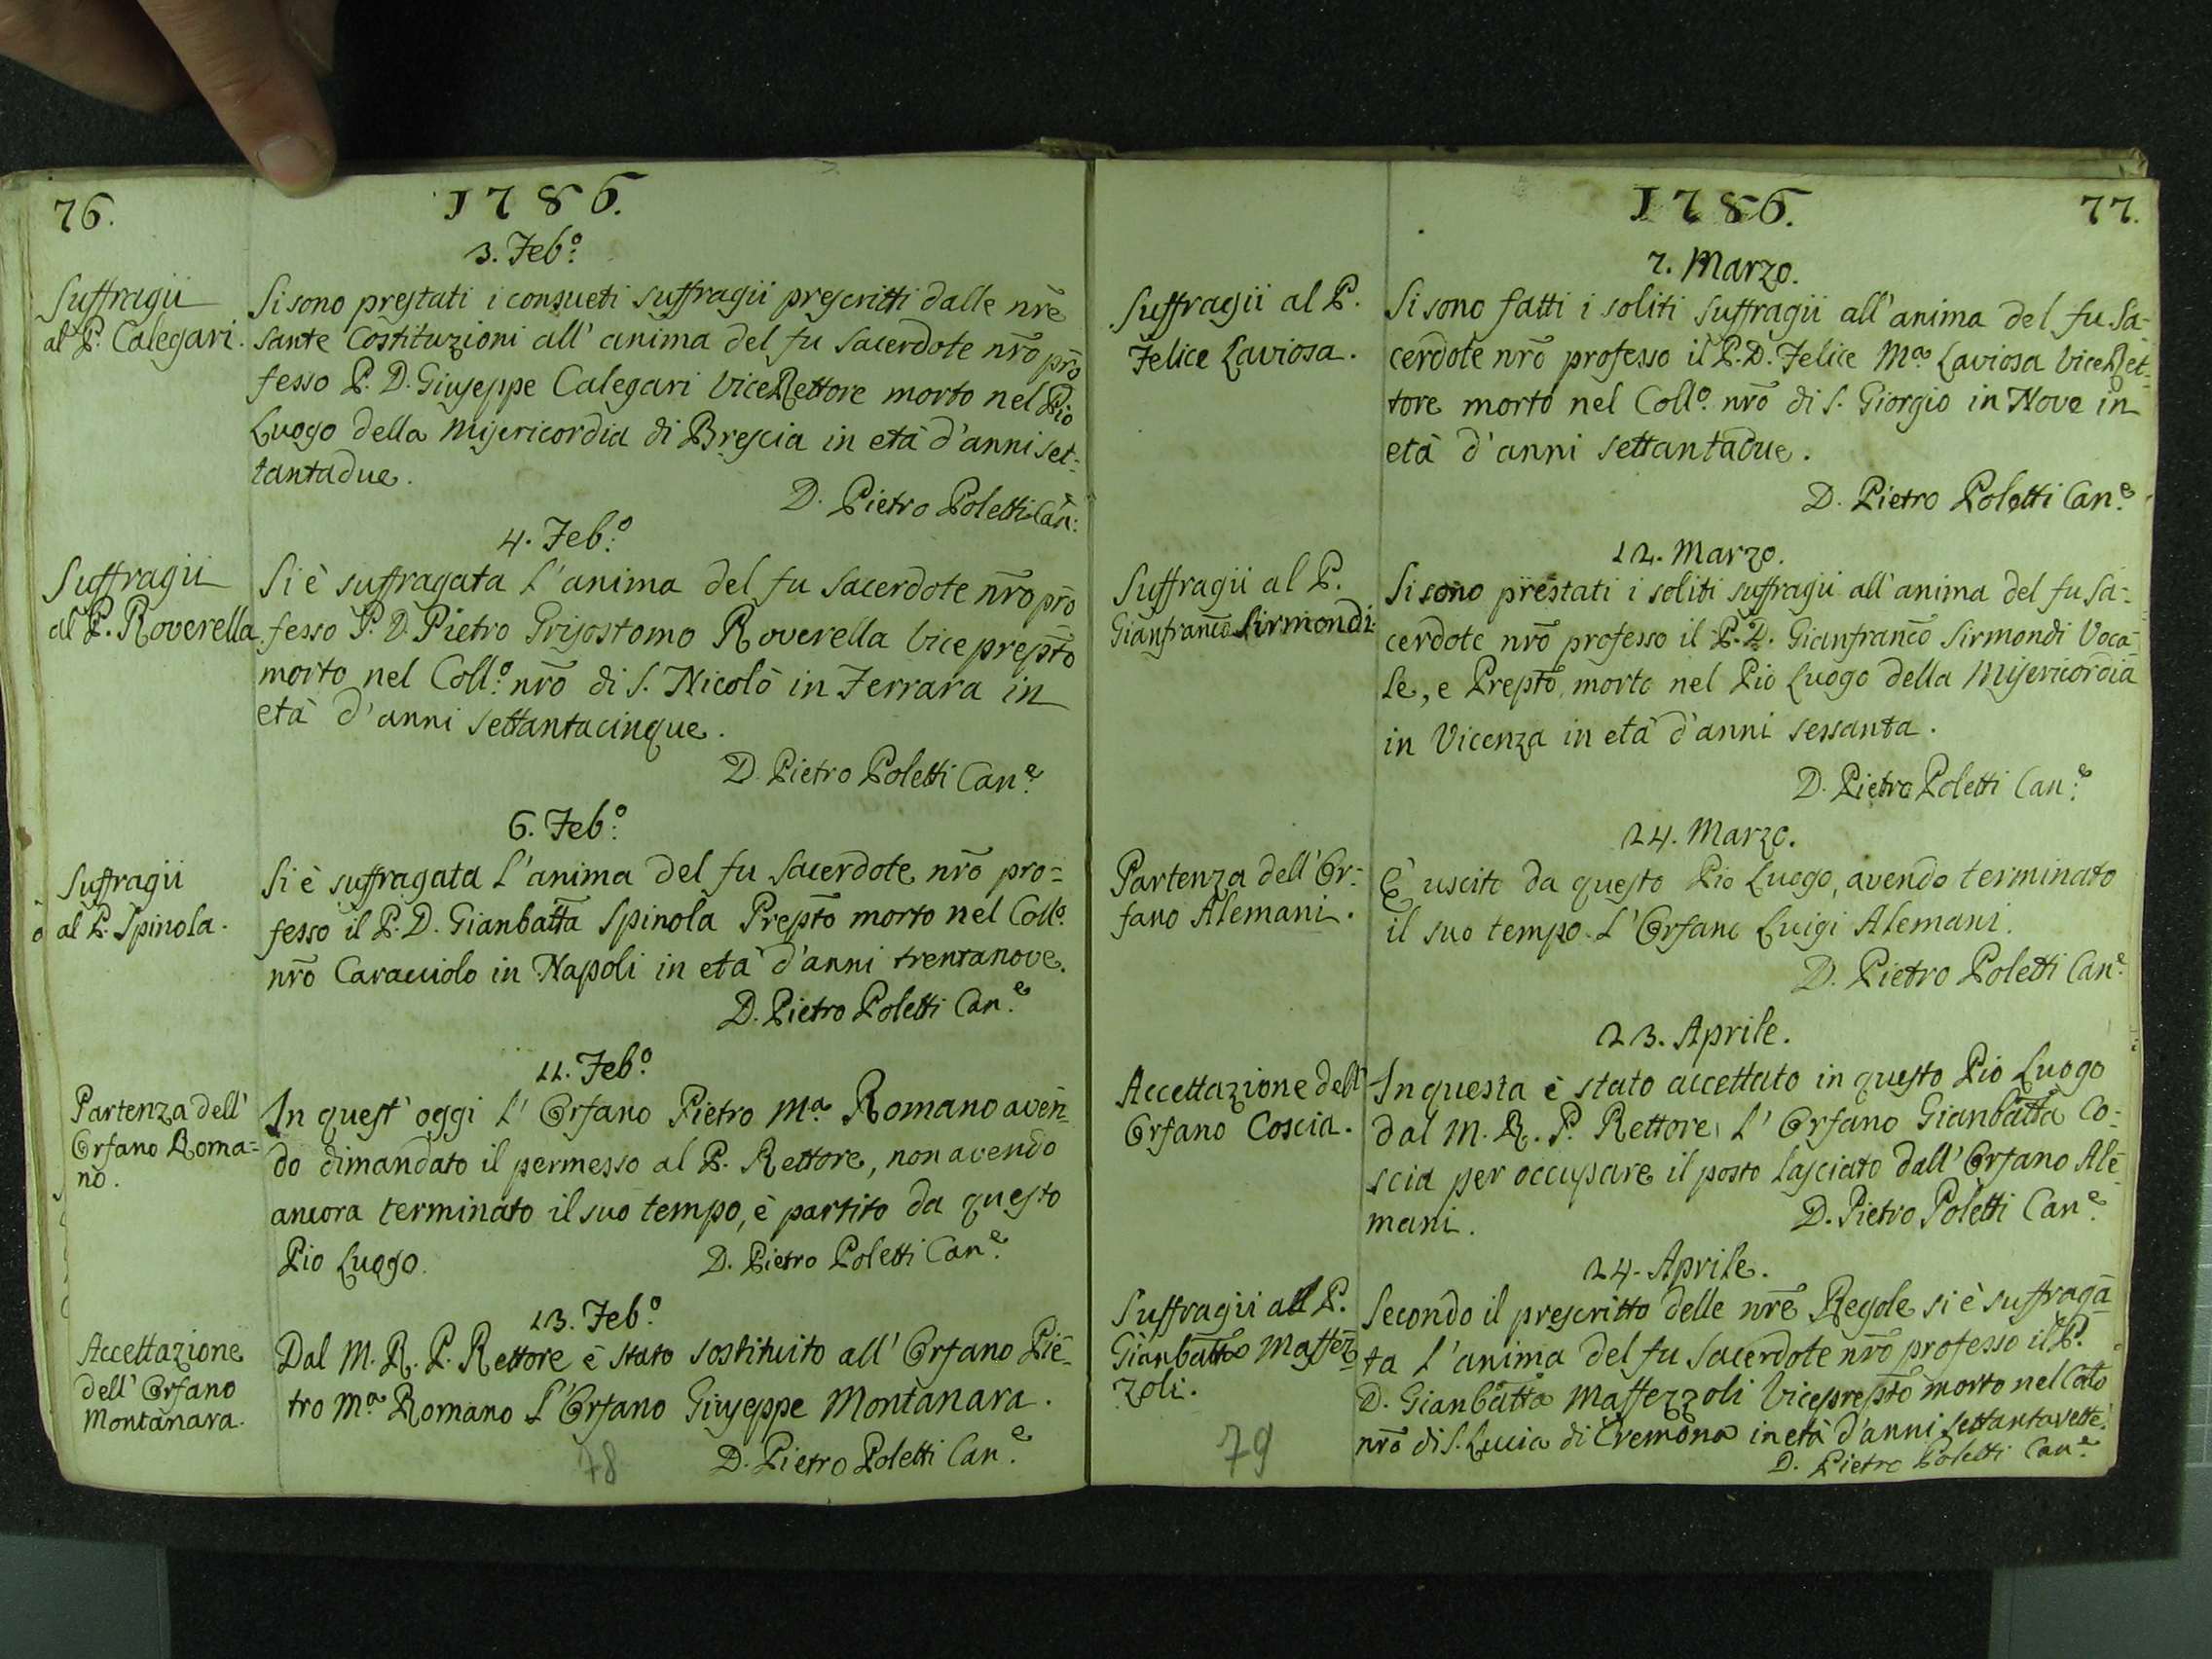 76.
1786.
3. Febº:
Suffragii
al P. Calegari.
Si sono prestati i consueti suffragii prescritti dalle nr̃e
sante Costituzioni all' anima del fu Sacerdote nr̃o pro
fesso P. D. Giuseppe Calegari ViceRettore morto nel Pio
Luogo della Misericordia di Brescia in età d'anni set-
tantadue.
D. Pietro Poletti Canᵉ:
4. Febº:
Suffragii
al P. Roverella
Si è suffragata l'anima del fu Sacerdote nr̃o pro
fesso P. D. Pietro Grisostomo Roverella Vice prepst̃o
morto nel Collº: nr̃o di S. Nicolò in Ferrara in
età d'anni settantacinque.
D. Pietro Poletti Canᵉ:
6. Febº:
Suffragii
al P. Spinola.
Si è suffragata l'anima del fu Sacerdote nr̃o pro=
fesso il P. D. Gianbatt̃a Spinola Prepst̃o morto nel Collº
nr̃o Caracciolo in Napoli in età d'anni trentanove.
D. Pietro Poletti Canᵉ:
11. Febº:
Partenza dell'
Orfano Roma=
no.
In quest' oggi l' Orfano Pietro Mª Romano aven=
do dimandato il permesso al P. Rettore, non avendo
ancora terminato il suo tempo, è partito da questo
Pio Luogo.
D. Pietro Poletti Canᵉ:
13. Febº:
Accettazione
dell' Orfano
Montanara.
Dal M. R. P. Rettore è stato sostituito all' Orfano Pie-
tro Mª Romano l'Orfano Giuseppe Montanara.
D. Pietro Poletti Canᵉ:
78
1786.
77.
7. Marzo.
Suffragii al P.
Felice Laviosa.
Si sono fatti i soliti suffragii all' anima del fu Sa-
cerdote nr̃o professo il P. D. Felice Mª Laviosa ViceRet-
tore morto nel Collº. nr̃o di S. Giorgio in Nove in
età d'anni settantadue.
D. Pietro Poletti Canᵉ:
12. Marzo.
Suffragii al P.
Gianfranc̃o Sirmondi.
Si sono prestati i soliti suffragii all' anima del fu Sa-
cerdote nr̃o professo il P. D. Gianfranc̃o Sirmondi Voca-
le, e Prepst̃o, morto nel Pio Luogo della Misericordia
in Vicenza in età d'anni sessanta.
D. Pietro Poletti Canᵉ:
24. Marzo.
Partenza dell' Or-
fano Alemani.
E' uscito da questo Pio Luogo, avendo terminato
il suo tempo l'Orfano Luigi Alemani.
D. Pietro Poletti Canᵉ:
23. Aprile.
Accettazione dell'
Orfano Coscia.
In questa è stato accettato in questo Pio Luogo
dal M. R. P. Rettore l' Orfano Gianbatt̃a Co-
scia per occupare il posto lasciato dall' Orfano Ale-
mani.
D. Pietro Poletti Canᵉ:
24. Aprile.
Suffragii all P.
Gianbatt̃a Maffez=
zoli.
Secondo il prescritto delle nr̃e Regole si è suffraga-
ta l'anima del fu Sacerdote nr̃o professo il P.
D. Gianbatt̃a Maffezzoli Viceprepst̃o morto nel Collº
nr̃o di S. Lucia di Cremona in età d'anni settantasette.
D. Pietro Poletti Canᵉ:
79